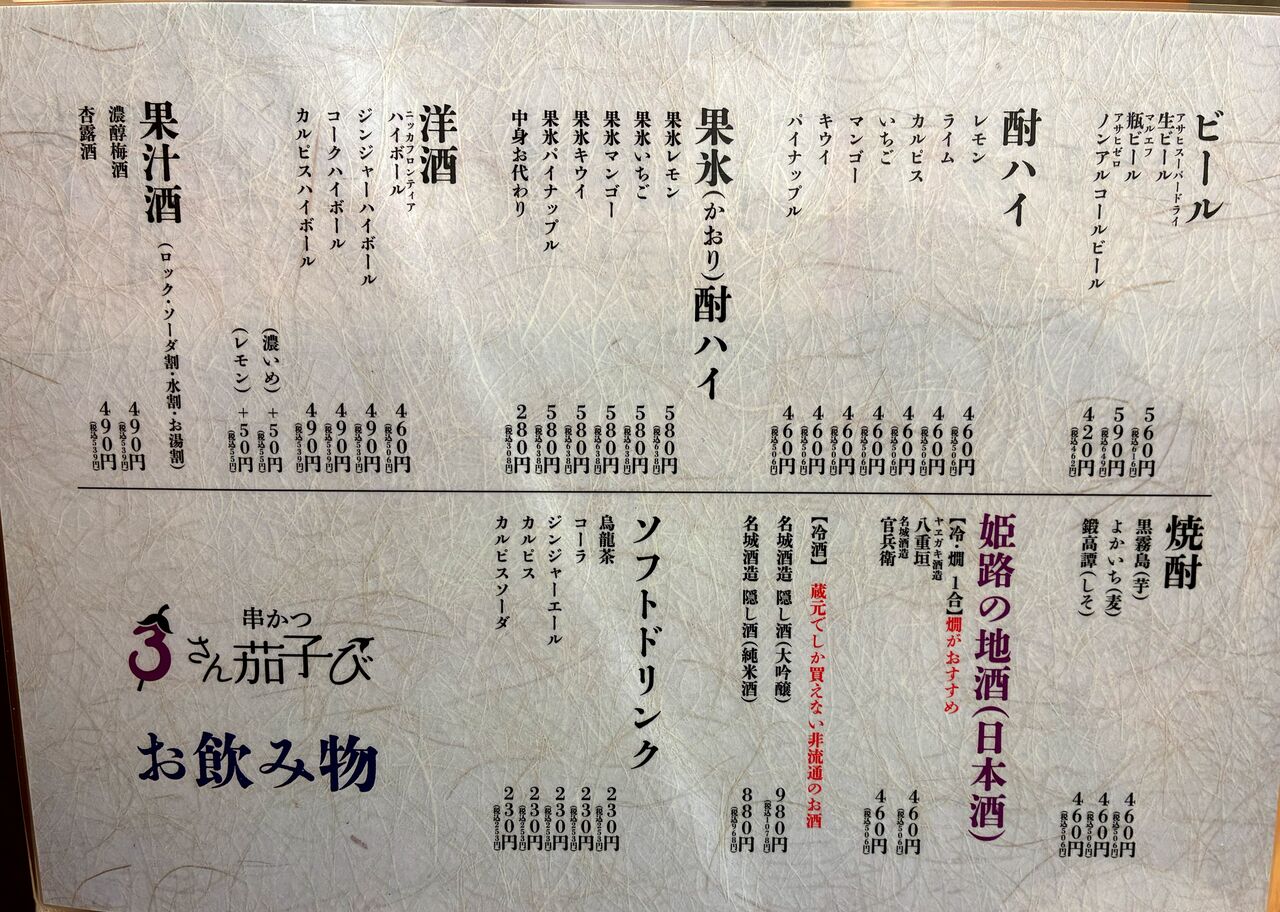 ビール
アサヒスーパードライ
生ビール 560円 (税込616円)
マルエフ
瓶ビール 590円 (税込649円)
アサヒゼロ
ノンアルコールビール 420円 (税込462円)
酎ハイ
レモン 460円 (税込506円)
ライム 460円 (税込506円)
カルピス 460円 (税込506円)
いちご 460円 (税込506円)
マンゴー 460円 (税込506円)
キウイ 460円 (税込506円)
パイナップル 460円 (税込506円)
果氷(かおり)酎ハイ
果氷レモン 580円 (税込638円)
果氷いちご 580円 (税込638円)
果氷マンゴー 580円 (税込638円)
果氷キウイ 580円 (税込638円)
果氷パイナップル 580円 (税込638円)
中身お代わり 280円 (税込308円)
洋酒
ニッカフロンティア
ハイボール 460円 (税込506円)
ジンジャーハイボール 490円 (税込539円)
コークハイボール 490円 (税込539円)
カルピスハイボール 490円 (税込539円)
(濃いめ) +50円 (税込55円)
(レモン) +50円 (税込55円)
果汁酒 (ロック・ソーダ割・水割・お湯割)
濃醇梅酒 490円 (税込539円)
杏露酒 490円 (税込539円)
焼酎
黒霧島(芋) 460円 (税込506円)
よかいち(麦) 460円 (税込506円)
鍛高譚(しそ) 460円 (税込506円)
姫路の地酒(日本酒)
【冷・燗 1合】燗がおすすめ
ヤヱガキ酒造
八重垣 460円 (税込506円)
名城酒造
官兵衛 460円 (税込506円)
【冷酒】 蔵元でしか買えない非流通のお酒
名城酒造 隠し酒(大吟醸) 980円 (税込1078円)
名城酒造 隠し酒(純米酒) 880円 (税込968円)
ソフトドリンク
烏龍茶 230円 (税込253円)
コーラ 230円 (税込253円)
ジンジャーエール 230円 (税込253円)
カルピス 230円 (税込253円)
カルピスソーダ 230円 (税込253円)
串かつ
さん茄子び
お飲み物